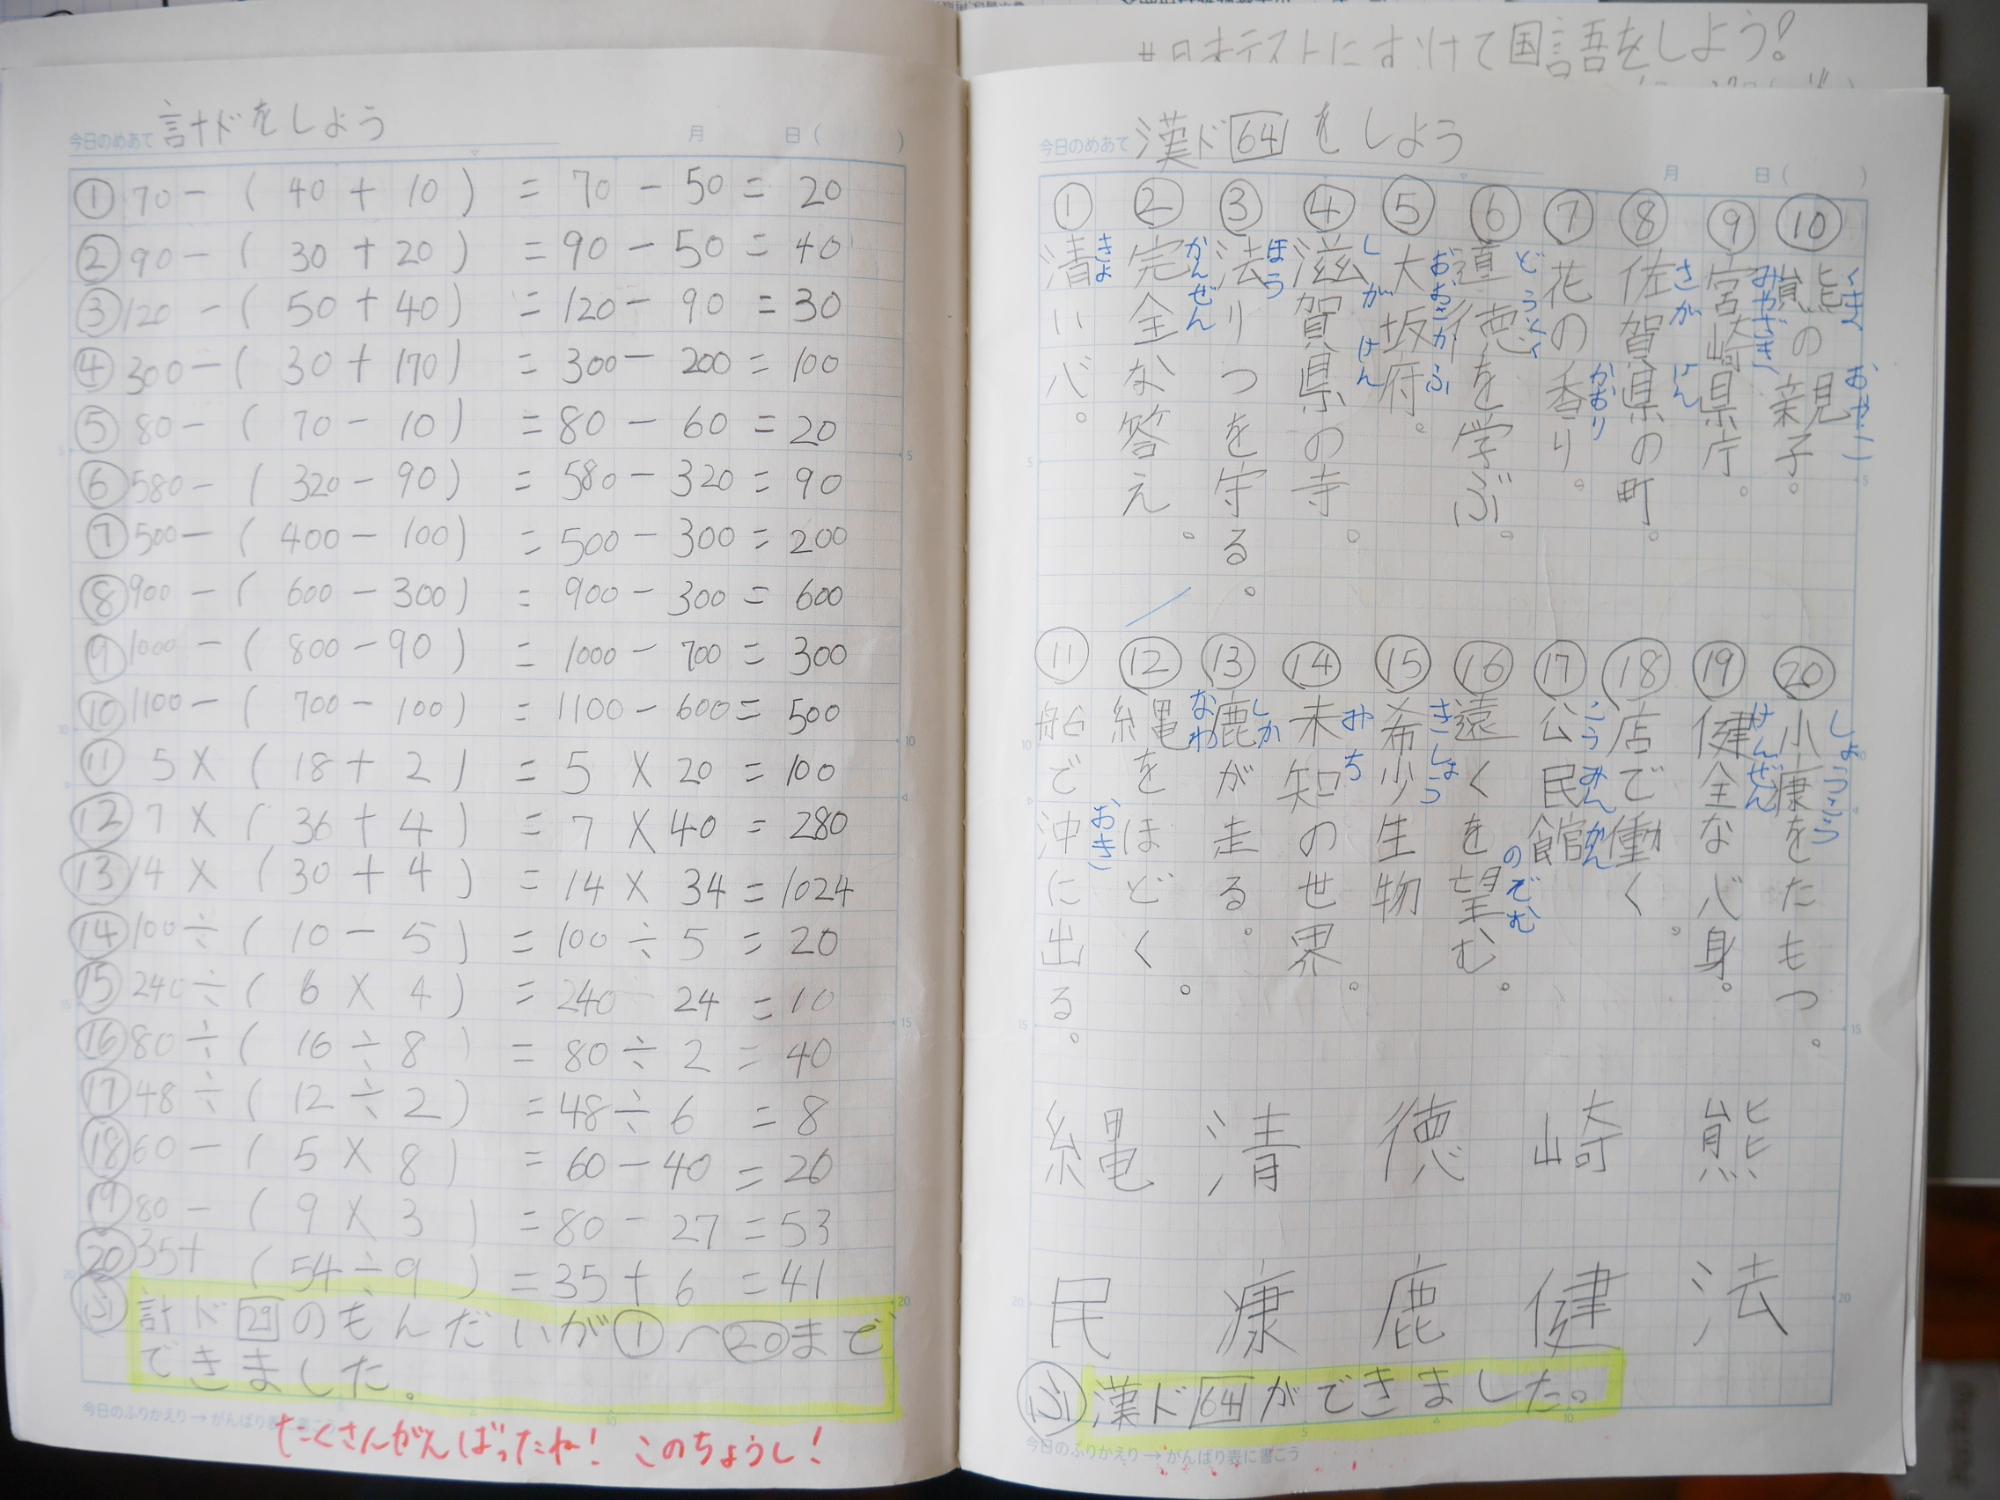 計ドをしよう
今日のめあて 月 日( )
① 70-(40+10) = 70-50= 20
② 90-(30+20) = 90-50= 40
③ 120-(50+40) = 120-90 = 30
④ 300-(30+170) = 300-200 = 100
⑤ 80-(70-10) = 80-60 = 20
⑥ 580-(320-90) = 580-320 = 90
⑦ 500-(400-100) = 500-300 = 200
⑧ 900-(600-300) = 900-300 = 600
⑨ 1000-(800-90) = 1000-700 = 300
⑩ 1100-(700-100) = 1100-600 = 500
⑪ 5×(18+2) = 5×20 = 100
⑫ 7×(36+4) = 7×40 = 280
⑬ 14×(30+4) = 14×34 = 1024
⑭ 100÷(10-5) = 100÷5 = 20
⑮ 240÷(6×4) = 240 24 = 10
⑯ 80÷(16÷8) = 80÷2 = 40
⑰ 48÷(12÷2) = 48÷6 = 8
⑱ 60-(5×8) = 60-40 = 20
⑲ 80-(9×3) = 80-27 = 53
⑳ 35+(54÷9) = 35+6 = 41
ふ 計ド29のもんだいが①〜⑳まで
できました。
今日のふりかえり→がんばり表に書こう
たくさんがんばったね! このちょうし!
国語をしよう!
漢ド64をしよう
今日のめあて 月 日( )
① 清い心。
きよ
② 完全な答え。
かんぜん
③ 法りつを守る。
ほう
④ 滋賀県の寺。
しがけん
⑤ 大坂府。
おおさかふ
⑥ 道徳を学ぶ。
どうとく
⑦ 花の香り。
かおり
⑧ 佐賀県の町。
さがけん
⑨ 宮崎県庁。
みやざき
⑩ 熊の親子。
⑪ 船で沖に出る。
おき
⑫ 縄をほどく。
なわ
⑬ 鹿が走る。
しか
⑭ 未知の世界。
みち
⑮ 希少生物
きしょう
⑯ 遠くを望む。
のぞむ
⑰ 公民館
こうみんかん
⑱ 店で働く。
⑲ 健全な心身。
けんぜん
⑳ 小康をたもつ。
しょうこう
縄 清 徳 崎 熊
民 康 鹿 健 法
ふ 漢ド64ができました。
今日のふりかえり→がんばり表に書こう